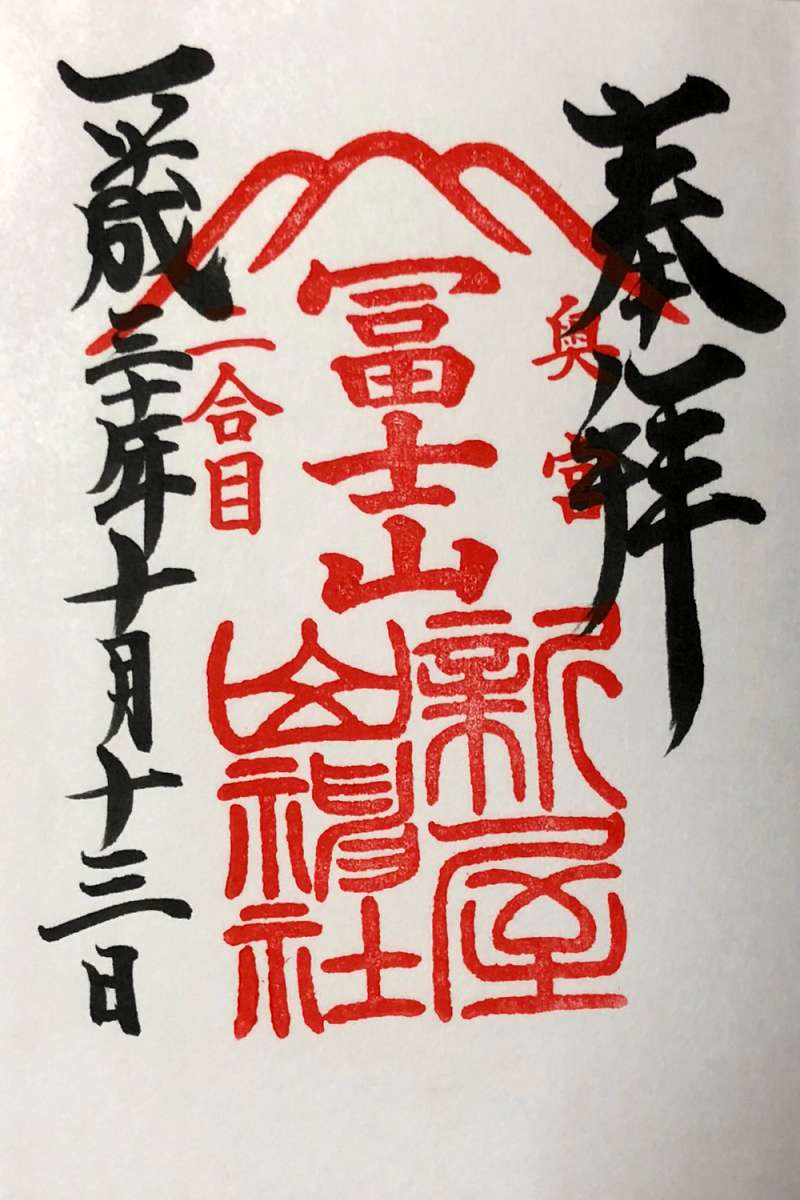 奉拝
奥宮
冨士山
二合目
新屋
山神社
平成三十年十月十三日